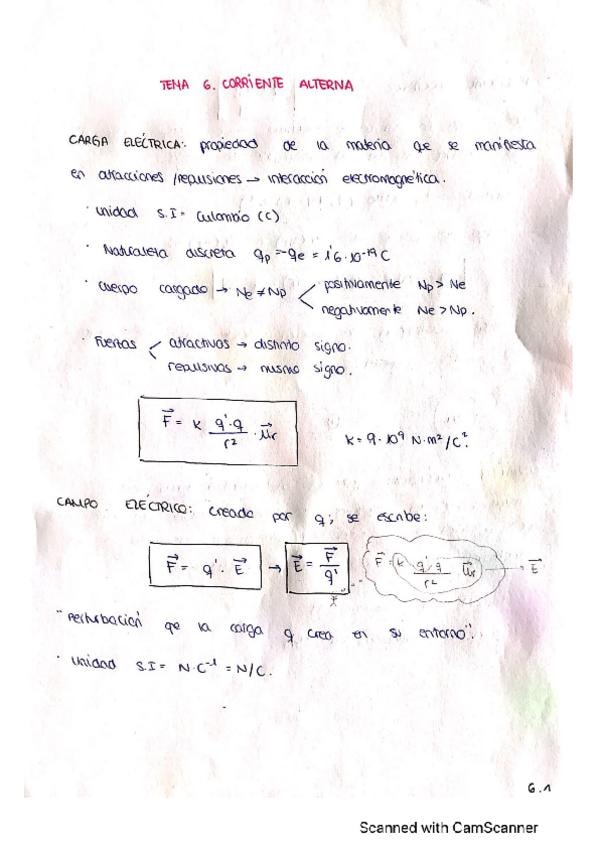 TEMA 6. CORRIENTE ALTERNA
CARGA ELÉCTRICA: propiedad de la materia que se manifiesta
en atracciones /repulsiones → interacción electromagnética.
· unidad S.I = Culombio (C)
· Naturaleza discreta qp = -qe = 1'6·10⁻¹⁹ C
· cuerpo cargado → Ne ≠ Np < positivamente Np > Ne
negativamente Ne > Np.
· Fuerzas < atractivas → distinto signo.
repulsivas → mismo signo.
F⃗ = K q'·q / r² · u⃗r K = 9·10⁹ N·m²/C².
CAMPO ELÉCTRICO: creado por q; se escribe:
F⃗ = q'·E⃗ → E⃗ = F⃗ / q' F⃗ = K q'·q / r² u⃗r = E⃗
"Perturbación que la carga q crea en su entorno".
· unidad S.I = N·C⁻¹ = N/C.
6.1
Scanned with CamScanner